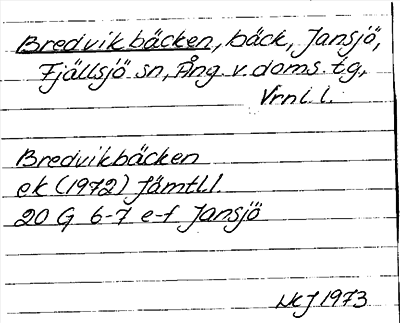 Bredvikbäcken, bäck, Jansjö,
Fjällsjö sn, Ång. v. doms. tg,
Vrnl. l.
Bredvikbäcken
ek (1972) Jämtl l
20 G 6-7 e-f Jansjö
1973